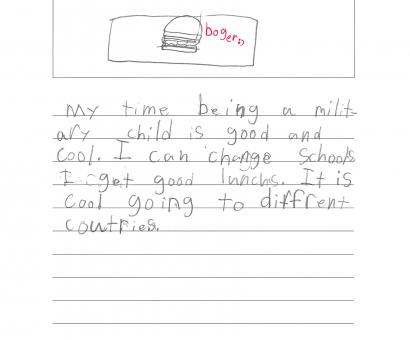 boger
My time being a milit-
ary child is good and
cool. I can change schools
I get good lunchs. It is
cool going to diffrent
coutries.